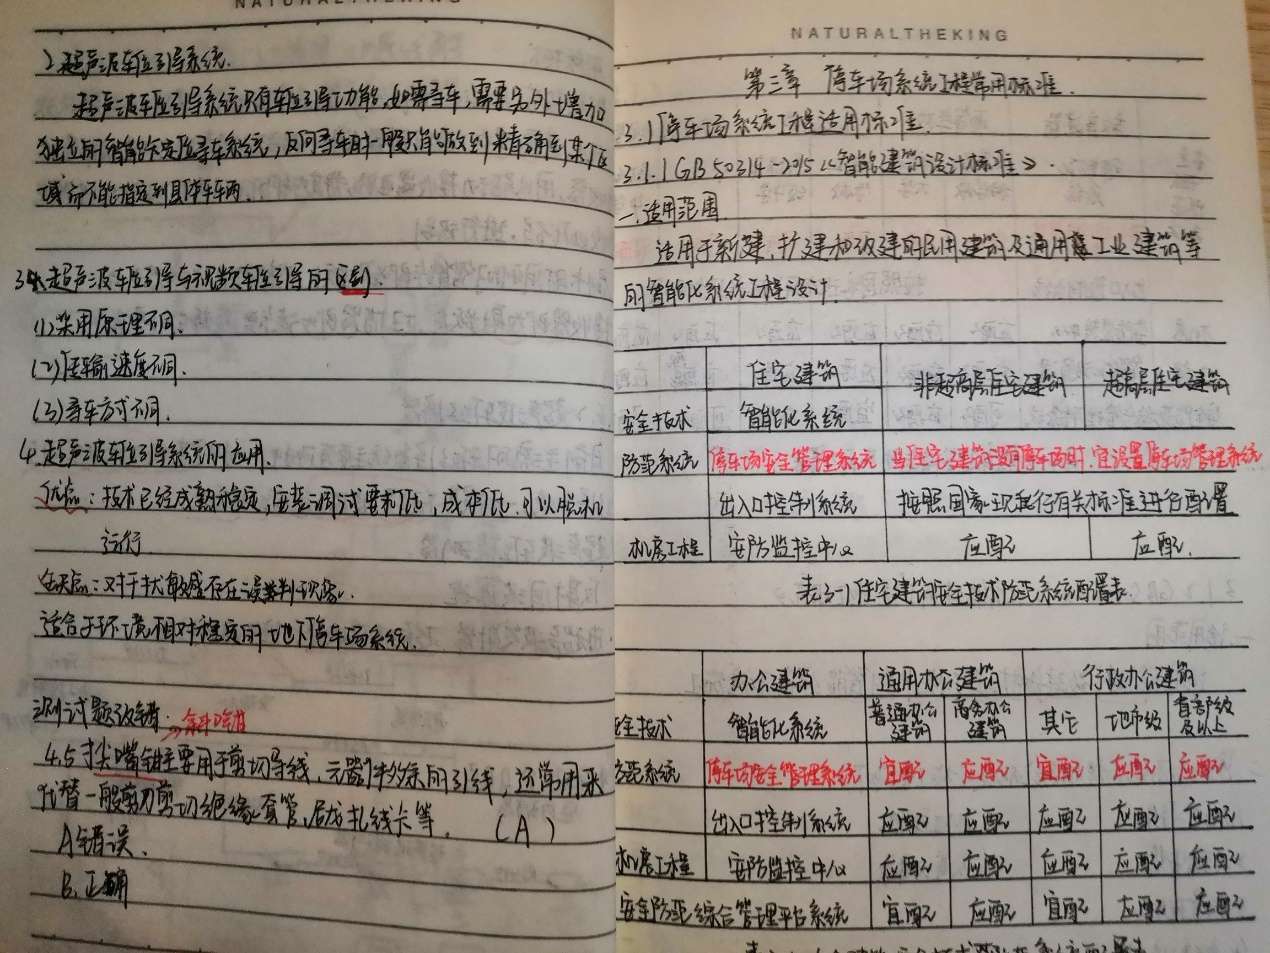 NATURALTHEKING
2.超声波车位引导系统.
超声波车位引导系统只有车位引导功能,如需寻车,需要另外增加
独立的智能卡定位寻车系统,反向寻车时一般只能做到精确到某个区
域而不能指定到具体车辆.
3.超声波车位引导与视频车位引导的区别.
(1)采用原理不同.
(2)传输速度不同.
(3)寻车方式不同.
4.超声波车位引导系统的应用.
优点:技术已经成熟稳定,安装调试要求低,成本低,可以脱机
运行
缺点:对于扰敏感存在误判现象.
适合于环境相对稳定的地下停车场系统.
测试题改错.
斜口钳
4.5寸尖嘴钳主要用于剪切导线,元器件多余的引线,还常用来
代替一般剪刀剪切绝缘套管,尼龙扎线卡等. (A)
A.错误.
B.正确
NATURALTHEKING
第三章 停车场系统工程常用标准.
3.1停车场系统工程适用标准.
3.1.1 GB 50314-2015《智能建筑设计标准》.
一.适用范围
适用于新建,扩建和改建的民用建筑及通用工业建筑等
的智能化系统工程设计.
住宅建筑 非超高层住宅建筑 超高层住宅建筑
安全技术 智能化系统
防范系统 停车场安全管理系统 当住宅建筑设有停车场时,宜设置停车场管理系统
出入口控制系统 按照国家现行有关标准进行配置
机房工程 安防监控中心 应配 应配.
表3-1住宅建筑安全技术防范系统配置表.
办公建筑 通用办公建筑 行政办公建筑
安全技术 智能化系统 普通办公建筑 商务办公建筑 其它 地市级 省部级及以上
防范系统 停车场安全管理系统 宜配 应配 宜配 应配 应配
出入口控制系统 应配 应配 应配 应配 应配
机房工程 安防监控中心 应配 应配 应配 应配 应配
安全防范综合管理平台系统 宜配 应配 宜配 应配 应配